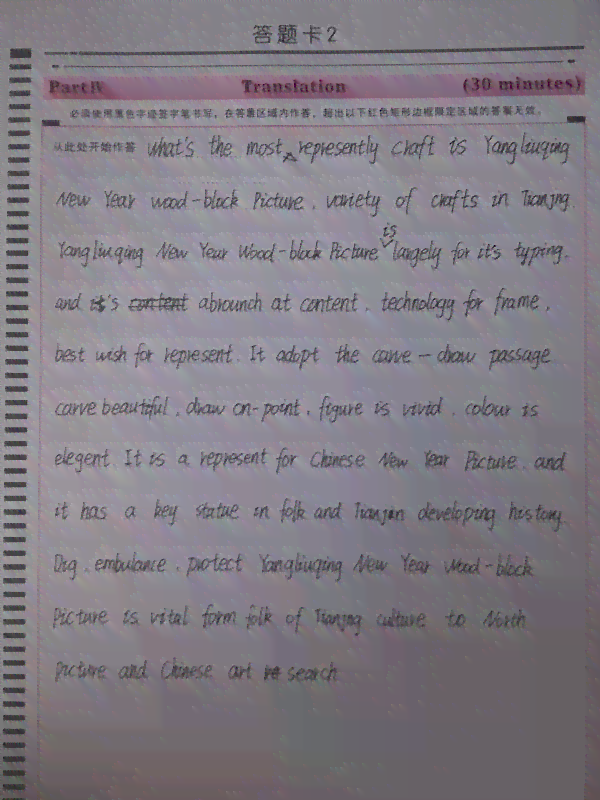 答题卡2
Part IV Translation (30 minutes)
必须使用黑色字迹签字笔书写，在答题区域内作答，超出以下红色矩形边框限定区域的答案无效。
从此处开始作答 what's the most represently craft is Yangliuqing
New Year wood-block Picture, variety of crafts in Tianjng
is
Yangliuqing New Year Wood-block Picture largely for it's typing.
and it's content abrounch at content, technology for frame,
best wish for represent. It adopt the carve - draw passage
carve beautiful, draw on-point, figure is vivid, colour is
elegent. It is a represent for Chinese New Year Picture, and
it has a key statue in folk and Tianjin developing history
Dig, embulance, protect Yangliuqing New Year Wood-block
Picture is vital form folk of Tianjng culture to North
Picture and Chinese art research